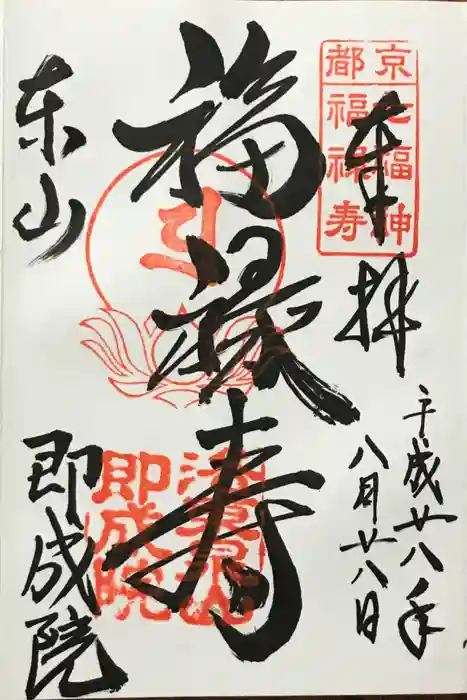 奉拝
平成廿八年
八月廿八日
京七福神
都福禄寿
福禄寿
東山
即成院
即成院